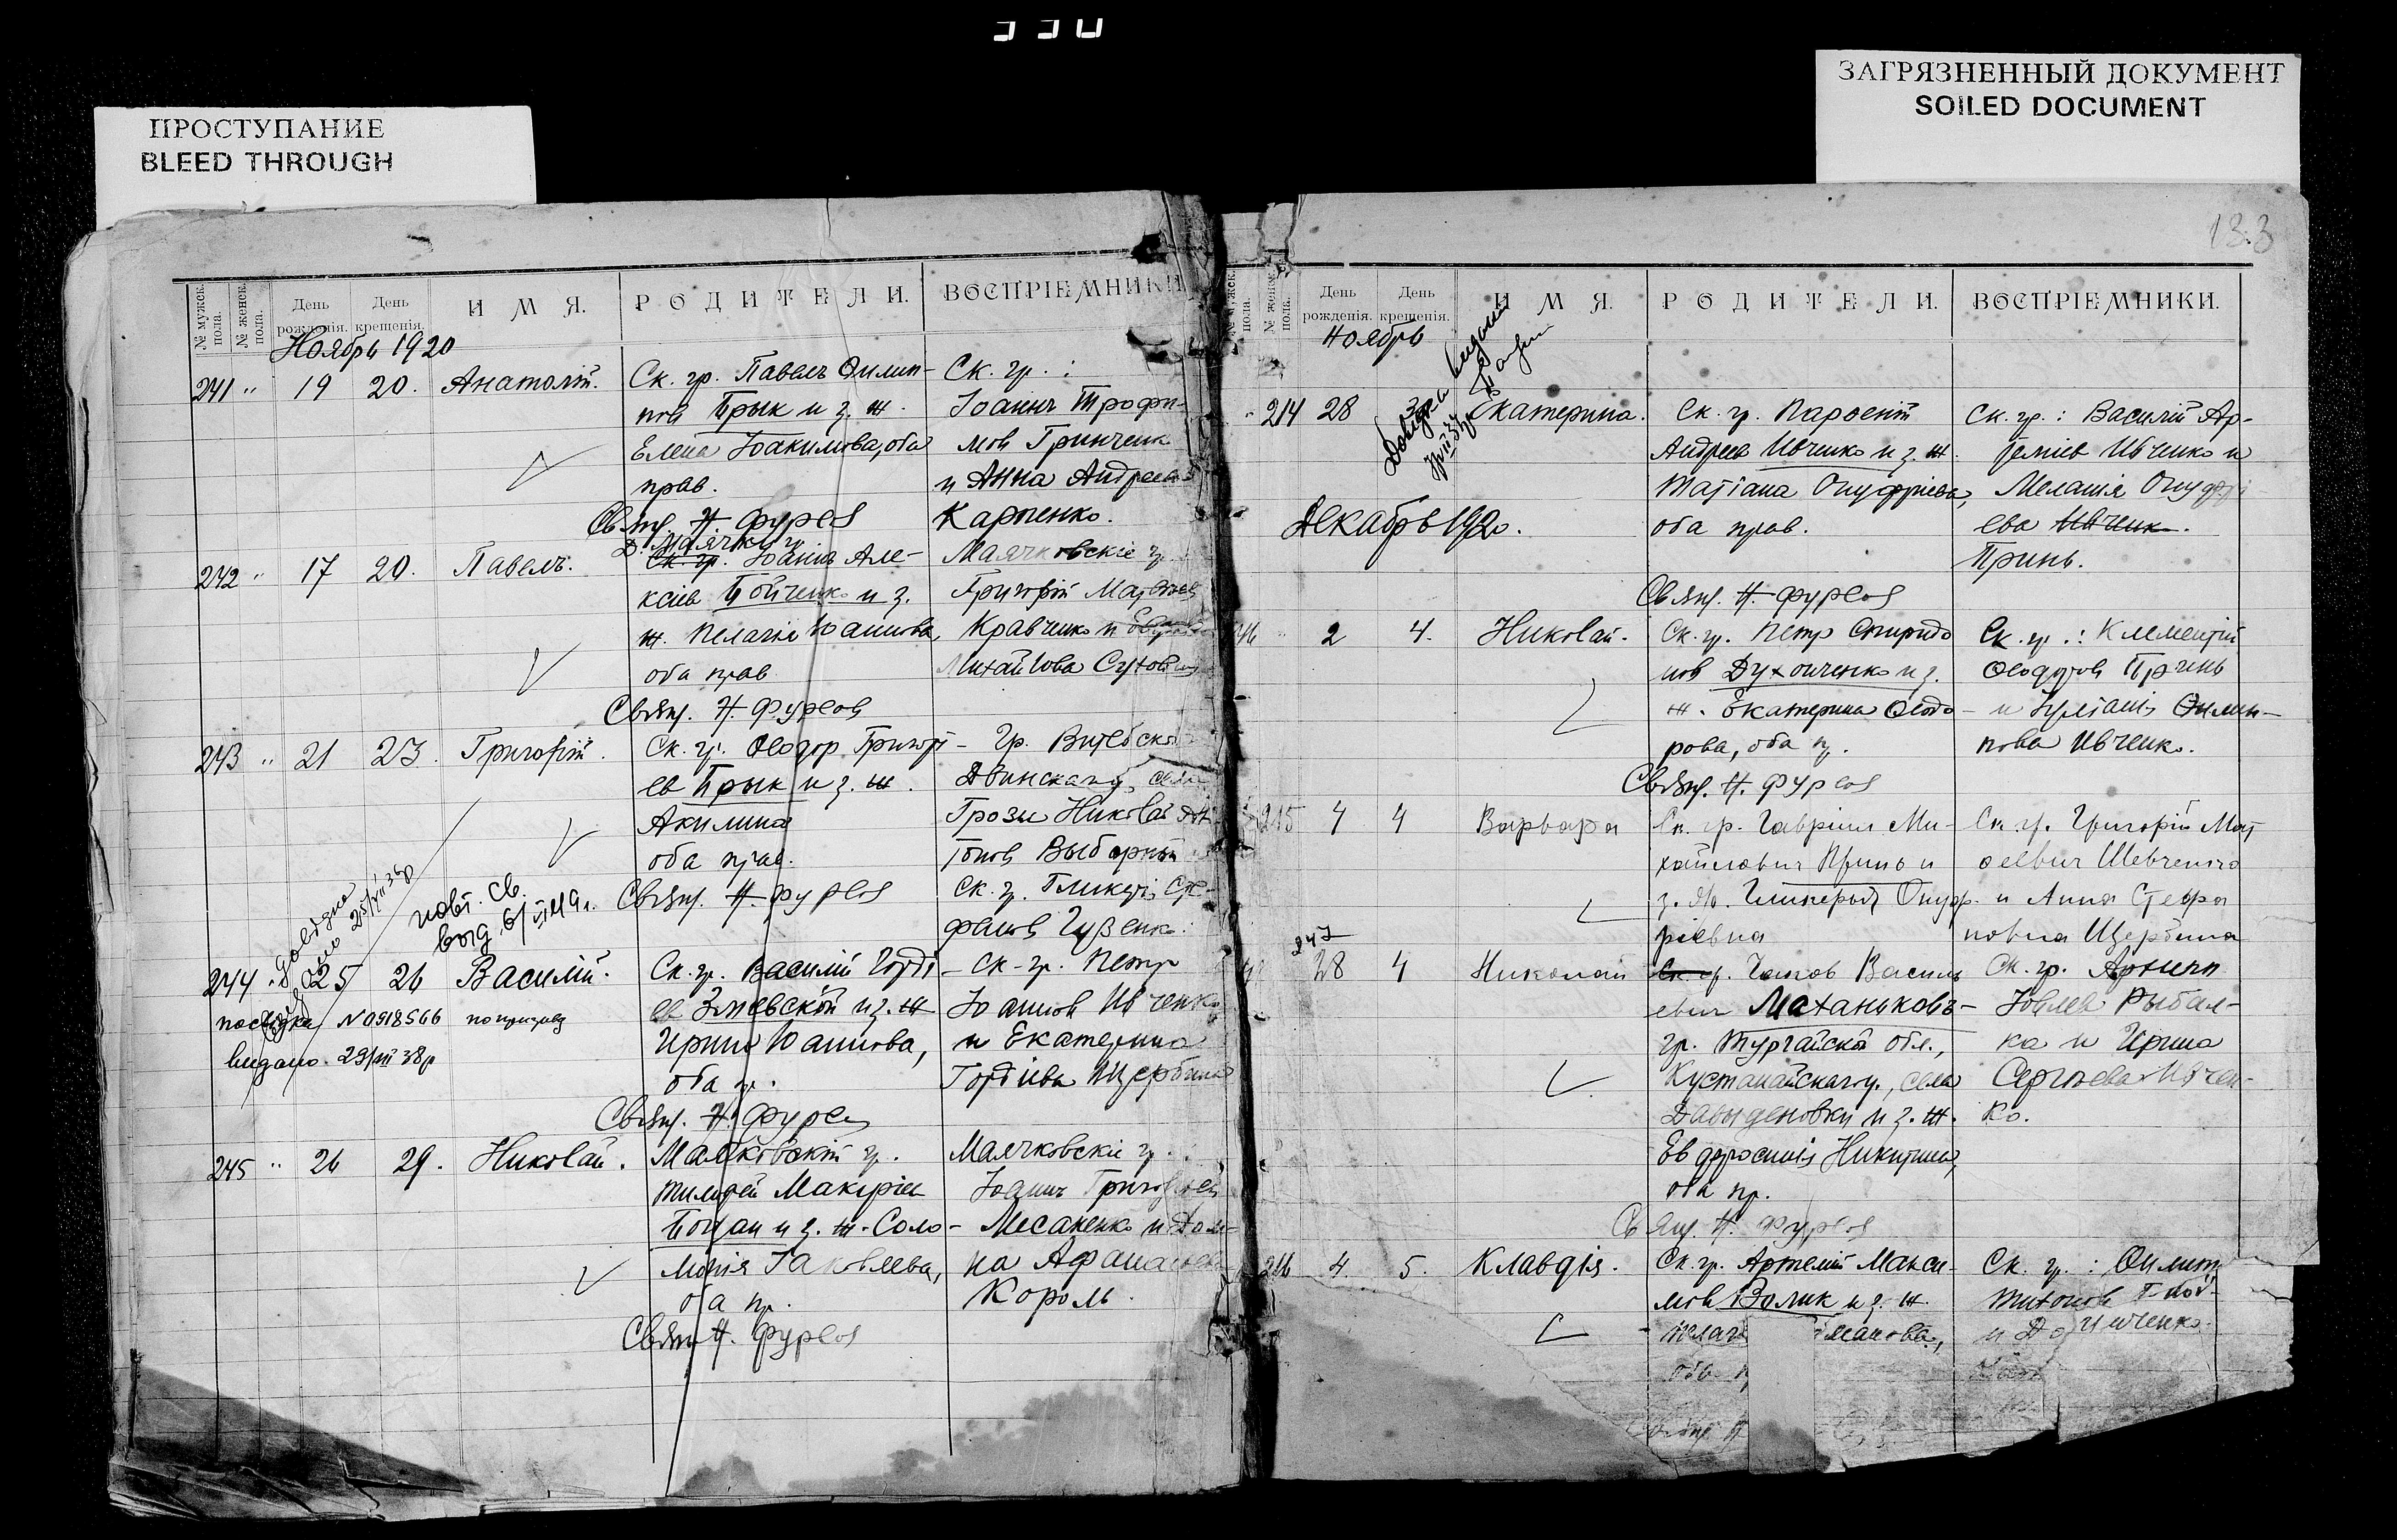 330
ПРОСТУПАНИЕ
BLEED THROUGH
ЗАГРЯЗНЕННЫЙ ДОКУМЕНТ
SOILED DOCUMENT
133
№ мужск. пола.
№ женск. пола.
День рожденія.
День крещенія.
ИМЯ.
РОДИТЕЛИ.
ВОСПРІЕМНИКИ
Ноябрь 1920
241 " 19 20. Анатолій.
Ск. гр. Павелъ Филип-
пов Брык и з. ж.
Елена Іоакимова, оба
прав.
Ск. гр. :
Іоаннъ Трофи-
мов Гринченк
и Анна Андреева
Карпенко.
Свящ. Н. Фурсов
242 " 17 20. Павелъ.
Д. Маячки г.
Ск. гр. Іоаннъ Але-
ксіев Бойченко и з.
ж. Пелагія Іоаннова,
оба прав
Маячковскіе г.
Григорій Матвѣев
Кравченко и
Михайлова
Свящ. Н. Фурсов
243 " 21 23. Григорій.
Ск. гр. Ѳеодор Григорі-
ев Брык и з. ж.
Акилина
оба прав.
Гр. Витебской
Двинскаго, села
Грозы Николай
Выборный
Ск. г. Гликерія Сте-
фанов Гузенк.
Свящ. Н. Фурсов
довідка
видано 25/VII 38р
повт. св.
выд. 6/
244 " 25 26 Василій.
Ск. гр. Василій Горді-
ев Змевской и з. ж
Ирина Іоаннова,
оба пр.
Ск. гр. Петр
Іоаннов Ивченко
и Екатерина
Гордіева Щербина
посвідка № 0918566 по призову
видано. 29/VII 38р
Свящ. Н. Фурсов
245 " 26 29. Николай.
Маячковскій г.
Тимофей Макаріев
и з. ж. Соло-
монія Іаковлева,
оба пр.
Маячковскіе г. :
Іоаннъ Григорьев
Месаненко и Дом-
на Афанасьева
Король.
Свящ. Н. Фурсов
№ мужск. пола.
№ женск. пола.
День рожденія.
День крещенія.
ИМЯ.
РОДИТЕЛИ.
ВОСПРІЕМНИКИ.
Ноябрь
Довідка видана
" 214 28 30 Екатерина.
Ск. гр. Парѳеній
Андреев Ивченко и з. ж.
Татіана Онуфріева,
оба прав.
Ск. гр. : Василій Ар-
теміев Ивченко и
Меланія Онуфрі-
ева Ивченк.
Принь.
Декабрь 1920.
Свящ. Н. Фурсов
246 " 2 4. Николай.
Ск. гр. Петр Спиридо
нов Духопченко и з.
ж. Екатерина Ѳеодо-
рова, оба п.
Ск. гр. : Климентій
Ѳеодотов Принь
и Іуліанія Филип-
пова Ивченко.
Свящ. Н. Фурсов
215 4 4 Варвара
Ск. гр. Гавріил Ми-
хайлович Принь и
з. ж. Гликерія Онуф-
ріевна
Ск. гр. Григорій Мат
ѳеевич Шевченко
и Анна Стефа
новна Щербина
247
28 4 Николай
Ск. гр. Іаков Василь
евич Маханьковъ-
гр. Тургайской обл.,
Кустанайскаго у., села
Давыденовки и з. ж.
Евфросинія Никитина,
оба пр.
Ск. гр. Архипп
Іовлев Рыбал-
ка и Ирина
Сергѣева Ивчен-
ко.
Свящ. Н. Фурсов
216 4 5. Клавдія.
Ск. гр. Артемій Макси-
мов Волик и з. ж.
Ск. гр. : Филипп
Тихонов